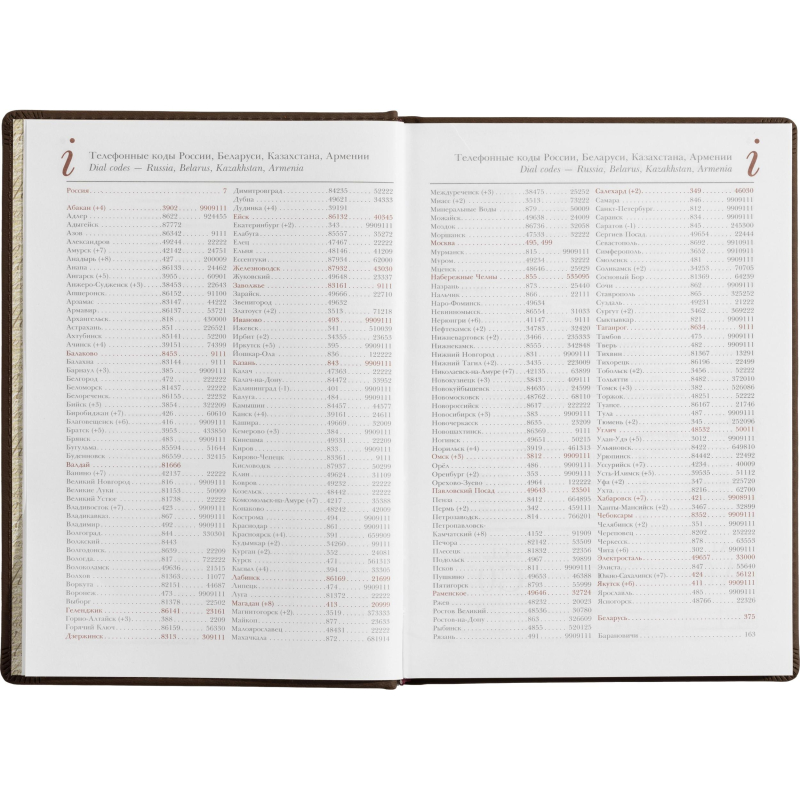 i
Телефонные коды России, Беларуси, Казахстана, Армении
Dial codes — Russia, Belarus, Kazakhstan, Armenia
Россия 7
Абакан (+4) 3902 9909111
Адлер 8622 924455
Адыгейск 87772
Азов 86342 9111
Александров 49244 22222
Амурск (+7) 42142 24751
Анадырь (+8) 427 200009
Анапа 86133 24462
Ангарск (+5)
Анжеро-Судженск (+3) 38453 22643
Апшеронск 86152 91100
Арзамас 83147 44222
Армавир 86137 53721
Архангельск 818 430000
Астрахань 851 226521
Ахтубинск 85141 52200
Ачинск (+4) 39151 74399
Балаково 8453 9111
Балахна 83144 9111
Барнаул (+3) 385 9909111
Белгород 472 222222
Беломорск 81437 22222
Белореченск 86155 22232
Бийск (+3) 3854 322209
Биробиджан (+7) 426 60610
Благовещенск (+6) 416 9909111
Братск (+5) 3953 433650
Брянск 483 9909111
Бугульма 85594 51644
Буденновск 86559 32415
Валдай 81666
Ванино (+7) 42137 22222
Великий Новгород 816 9909111
Великие Луки 81153 50909
Великий Устюг 81738 22222
Владивосток (+7) 423 9909111
Владикавказ 867 9909111
Владимир 492 9909111
Волгоград 844 330301
Волжский 8443
Волгодонск 8639 22209
Вологда 817 722222
Волоколамск 49636 21515
Волхов 81363 11077
Воркута 82151 44087
Воронеж 473 9909111
Выборг 81378 22502
Геленджик 86141 23161
Горно-Алтайск (+3) 388 2209
Горячий Ключ 86159 36330
Дзержинск 8313 309111
Димитровград 84235 52222
Дубна 49621 34333
Дудинка (+4) 39191
Ейск 86132 40345
Екатеринбург (+2) 343 9909111
Елабуга 85557 35272
Елец 47467 22222
Ельня 48146 41209
Ессентуки 87934 62000
Железноводск 87932 43030
Жуковский 49648 23337
Заволжье 83161 9111
Зарайск 49666 22710
Звенигород 49632
Златоуст (+2) 3513 71218
Иваново 493 9909111
Ижевск 341 510039
Ирбит (+2) 34355 23653
Иркутск (+5) 395 9909111
Йошкар-Ола 836 122222
Казань 843 9909111
Калач 47363 22222
Калач-на-Дону 84472 33952
Калининград (-1) 401 9909111
Калуга 484 9909111
Камышин 84457 44577
Канск (+4) 39161 24611
Кашира 49669 32009
Кемерово (+3) 384 9909111
Кинешма 49331 22209
Киров 833 9909111
Кирово-Чепецк 83361 9111
Кисловодск 87937 50299
Клин 49624 51100
Ковров 49232 22222
Козельск 48442 22222
Комсомольск-на-Амуре (+7) 4217 35580
Конаково 48242 42009
Кострома 494 9909111
Краснодар 861 9909111
Красноярск (+4) 391 659909
Кудымкар (+2) 34260 99111
Курган (+2) 352 24081
Курск 471 561313
Кызыл (+4) 394 33505
Лабинск 86169 21699
Липецк 474 9909111
Луга 81372 22222
Магадан (+8) 413 20999
Магнитогорск (+2) 3519 373333
Майкоп 877 23633
Малоярославец 48431 22222
Махачкала 872 681914
Телефонные коды России, Беларуси, Казахстана, Армении
Dial codes — Russia, Belarus, Kazakhstan, Armenia
i
Междуреченск (+3) 38475 25252
Миасс (+2) 3513 73222
Минеральные Воды 879 50009
Можайск 49638 24009
Моздок 86736 32058
Моршанск 47533 32222
Москва 495, 499
Мурманск 815 9909111
Муром 49234 32222
Мценск 48646 25929
Набережные Челны 855 535095
Назрань 873 25440
Нальчик 866 22111
Наро-Фоминск 49634
Невинномысск 86554 31033
Нерюнгри (+6) 41147 9111
Нефтекамск (+2) 34783 32420
Нижневартовск (+2) 3466 235333
Нижнекамск 8555 342848
Нижний Новгород 831 9909111
Нижний Тагил (+2) 3435 223009
Николаевск-на-Амуре (+7) 42135 63899
Новокузнецк (+3) 3843 409111
Новокуйбышевск 84635 24599
Новомосковск 48762 68110
Новороссийск 8617 222222
Новосибирск (+3) 383 9909111
Новочеркасск 8635 23209
Новошахтинск 86369 9111
Ногинск 49651 50215
Норильск (+4) 3919 461313
Омск (+3) 3812 9909111
Орёл 486 9909111
Оренбург (+2) 353 9909111
Орехово-Зуево 4964 122222
Павловский Посад 49643 23501
Пенза 8412 664895
Пермь (+2) 342 459111
Петрозаводск 814 766201
Петропавловск
Камчатский (+8) 4152 91909
Печора 82142 53509
Плесецк 81832 22356
Подольск 4967 59899
Псков 811 9909111
Пушкино 49653 46388
Пятигорск 8793 55999
Раменское 49646 32724
Ржев 48232 20023
Ростов Великий 48536 30789
Ростов-на-Дону 863 326609
Рыбинск 4855 520125
Рязань 491 9909111
Салехард (+2) 349 46030
Самара 846 9909111
Санкт-Петербург 812 9909111
Саранск 834 9909111
Саратов (-1) 845 243300
Сергиев Посад 49654 22444
Севастополь 8692 9909911
Симферополь 3652 9909111
Смоленск 481 9909111
Соликамск (+2) 34253 70705
Сосновый Бор 81369 64259
Сочи 862 9909111
Ставрополь 865 325252
Суздаль 49231 21222
Сургут (+2) 3462 369222
Сыктывкар 821 9909111
Таганрог 8634 9111
Тамбов 475 9909111
Тверь 482 9909111
Тихвин 81367 13291
Тихорецк 86196 22499
Тобольск (+2) 3456 52222
Тольятти 8482 372010
Томск (+3) 382 526086
Торжок 48251 52222
Туапсе 86167 21746
Тула 487 9909111
Тюмень (+2) 345 252096
Углич 48532 50011
Улан-Удэ (+5) 3012 9909111
Ульяновск 8422 649810
Урюпинск 84442 22492
Уссурийск (+7) 4234 40009
Усть-Илимск (+5) 39535 51112
Уфа (+2) 347 225720
Ухта 8216 62700
Хабаровск (+7) 421 9909911
Ханты-Мансийск (+2) 3467 32899
Чебоксары 8352 9909111
Челябинск (+2) 351 9909111
Череповец 8202 252222
Черкесск 878 63553
Чита (+6) 302 9909111
Электросталь 49657 33000
Элиста 847 55540
Южно-Сахалинск (+7) 424 56121
Якутск (+6) 411 9909111
Ярославль 485 9909111
Ясногорск 48766 22326
Беларусь 375
Барановичи 163